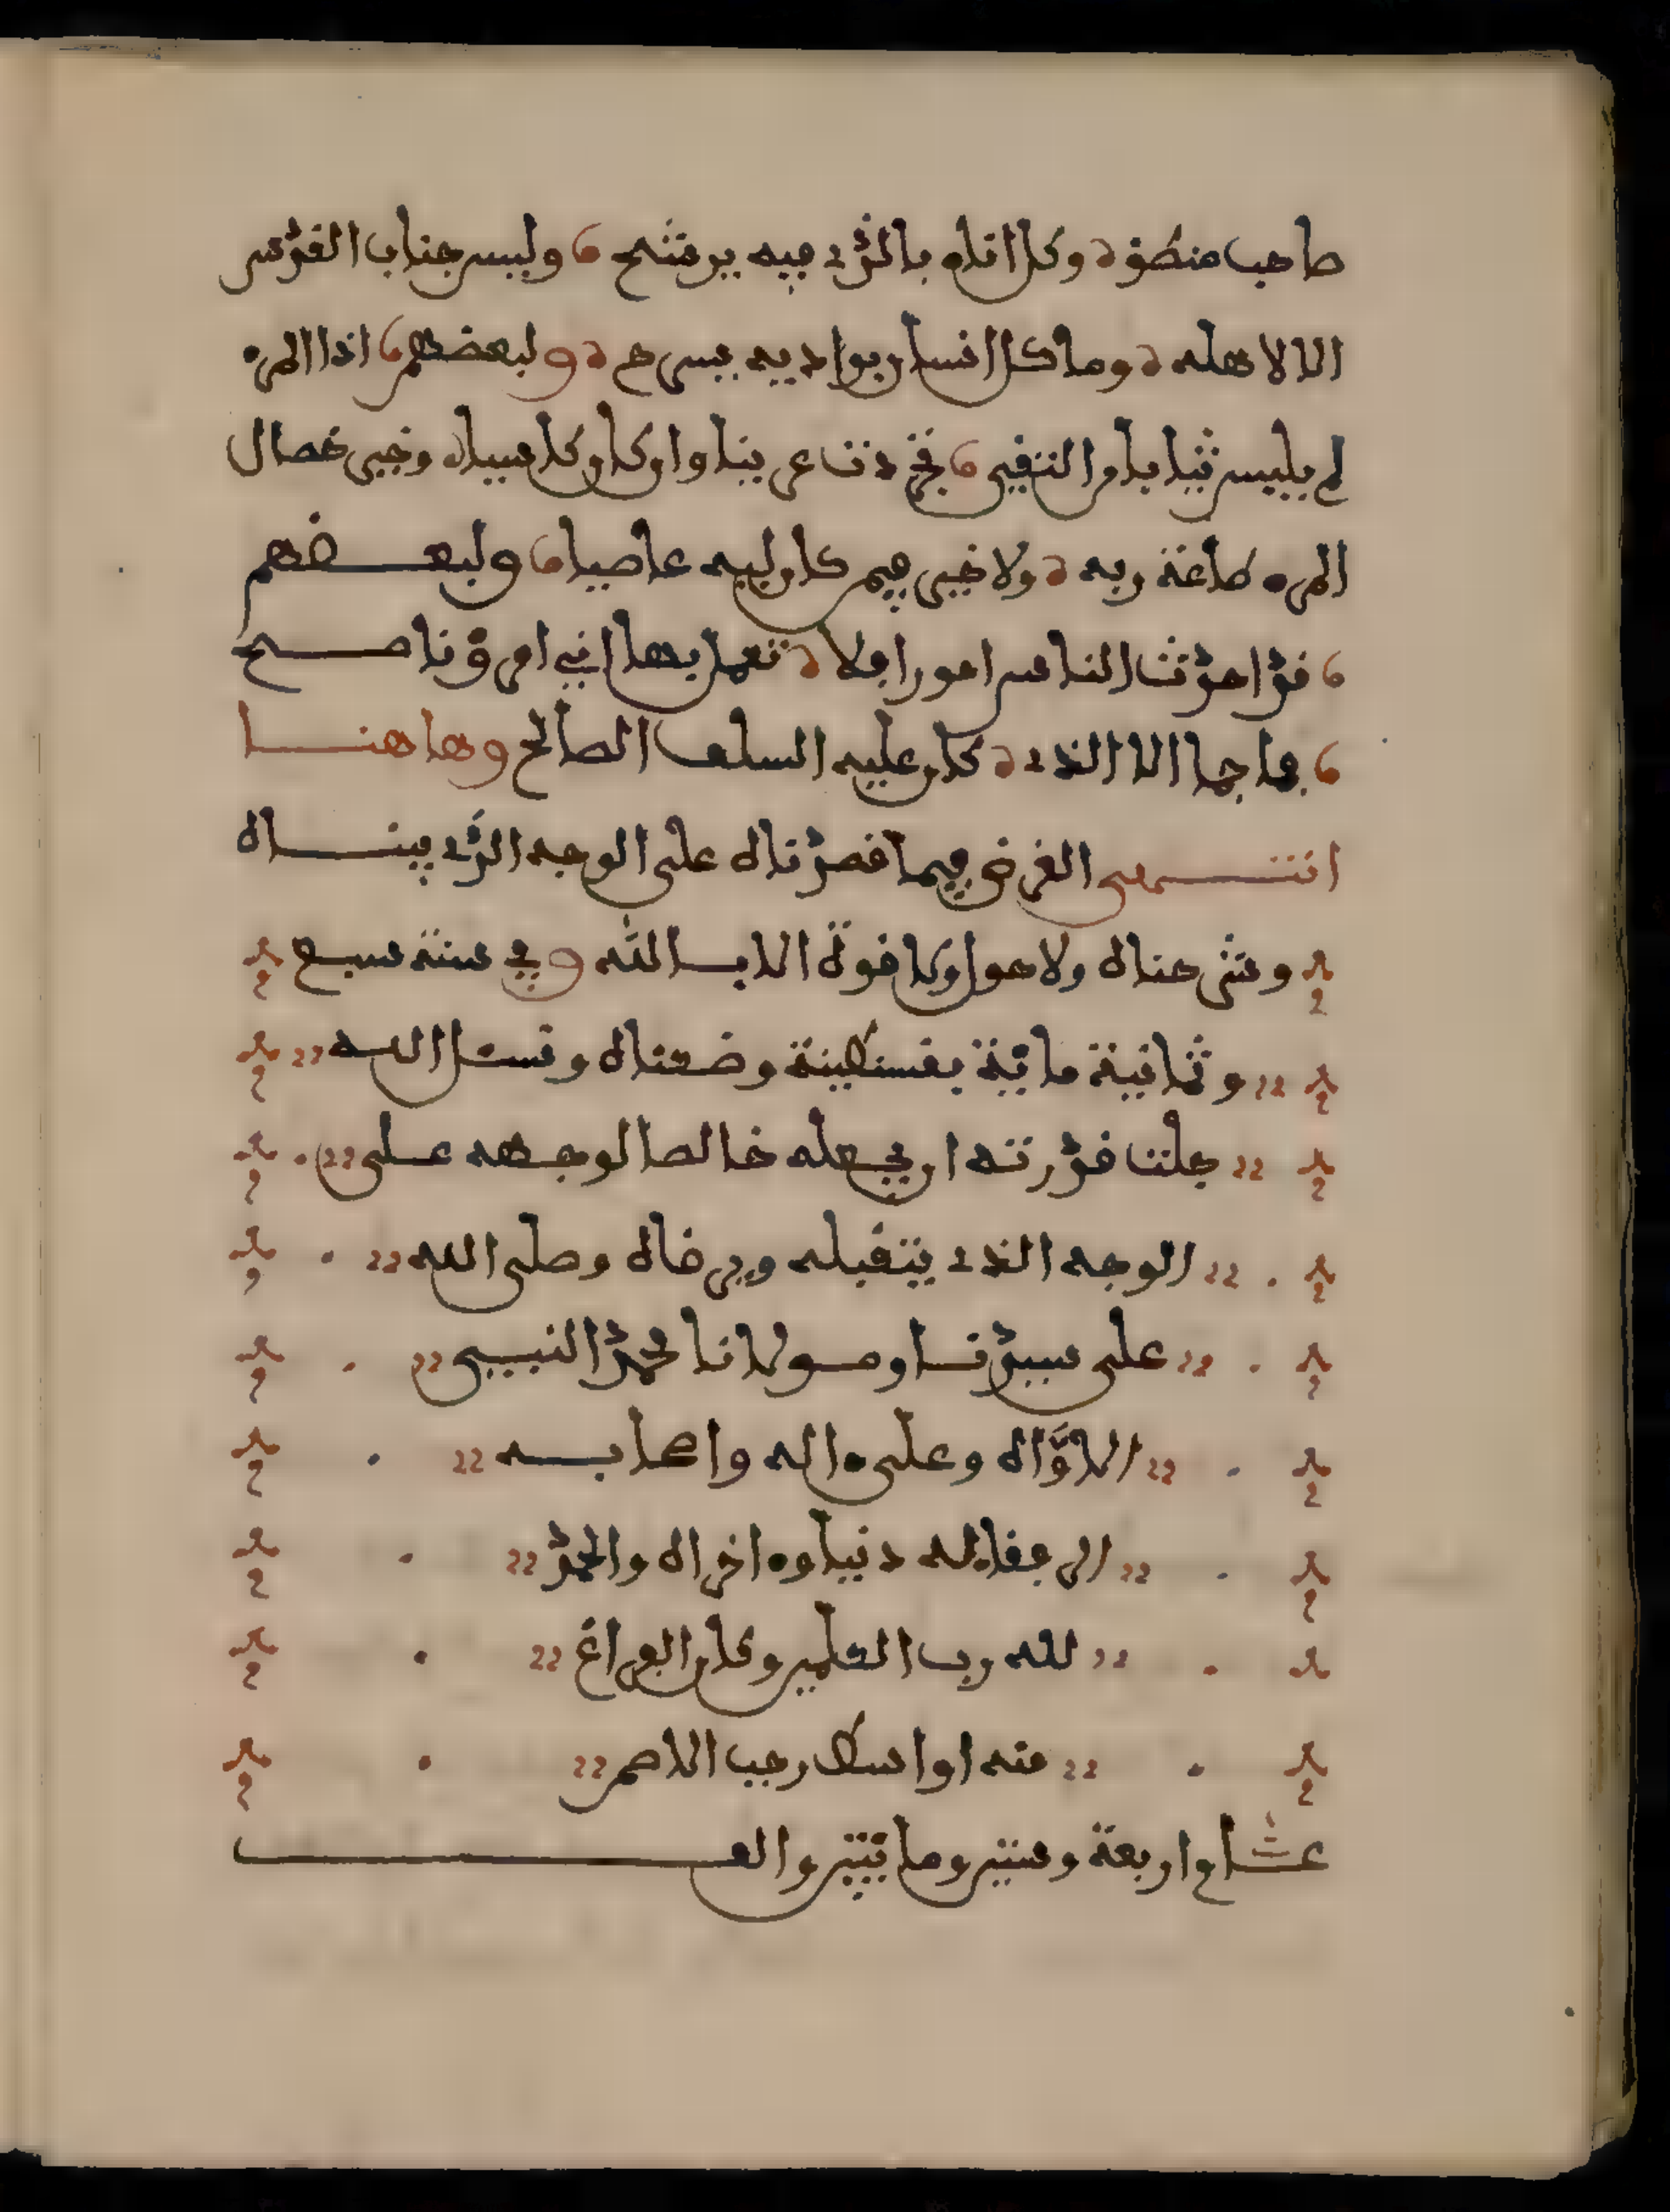 صاحب منطقه وكل اناء بالذي فيه يرشح وليس جناب القدس
الا لاهله وما كل انسان بواديه يسرح ولبعضهم اذا المرء
لم يلبس ثيابا من التقى تجرد عريانا وان كان كاسيا وخير خصال
المرء طاعة ربه ولا خير فيمن كان لله عاصيا ولبعضهم
قد احدث الناس امورا فلا تعمل بها اني امرؤ ناصح
فما جما الا الذي كان عليه السلف الصالح وهاهنا
انتهى الغرض فيما قصدناه على الوجه الذي بيناه
وشرحناه ولا حول ولا قوة الا بالله وفي سنة سبع
وثمانية مائة بقسنطينة وضعناه ونسئل الله
جلت قدرته ان يجعله خالصا لوجهه على
الوجه الذي يتقبله ويرضاه وصلى الله
على سيدنا ومولانا محمد النبيى
الاواه وعلى ءاله واصحابه
دنياه واخراه والحمد
لله رب العلمين وكان الفراغ
منه اواسط رجب الاصم
عام اربعة وستين ومائتين والف